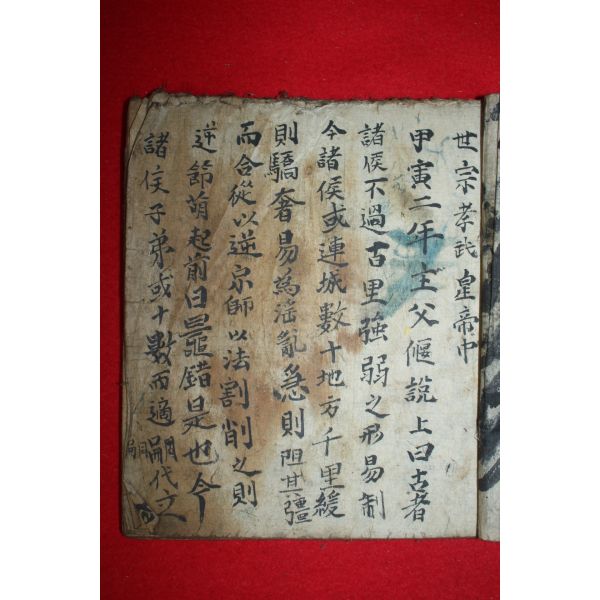 世宗孝武皇帝中
甲寅二年主父偃說上曰古者
諸侯不過古里強弱之形易制
今諸侯或連城數十地方千里緩
則驕奢易為淫亂急則阻其疆
而合從以逆京師以法割削之則
逆節萌起前日鼂錯是也今
諸侯子弟或十數而適嗣代立